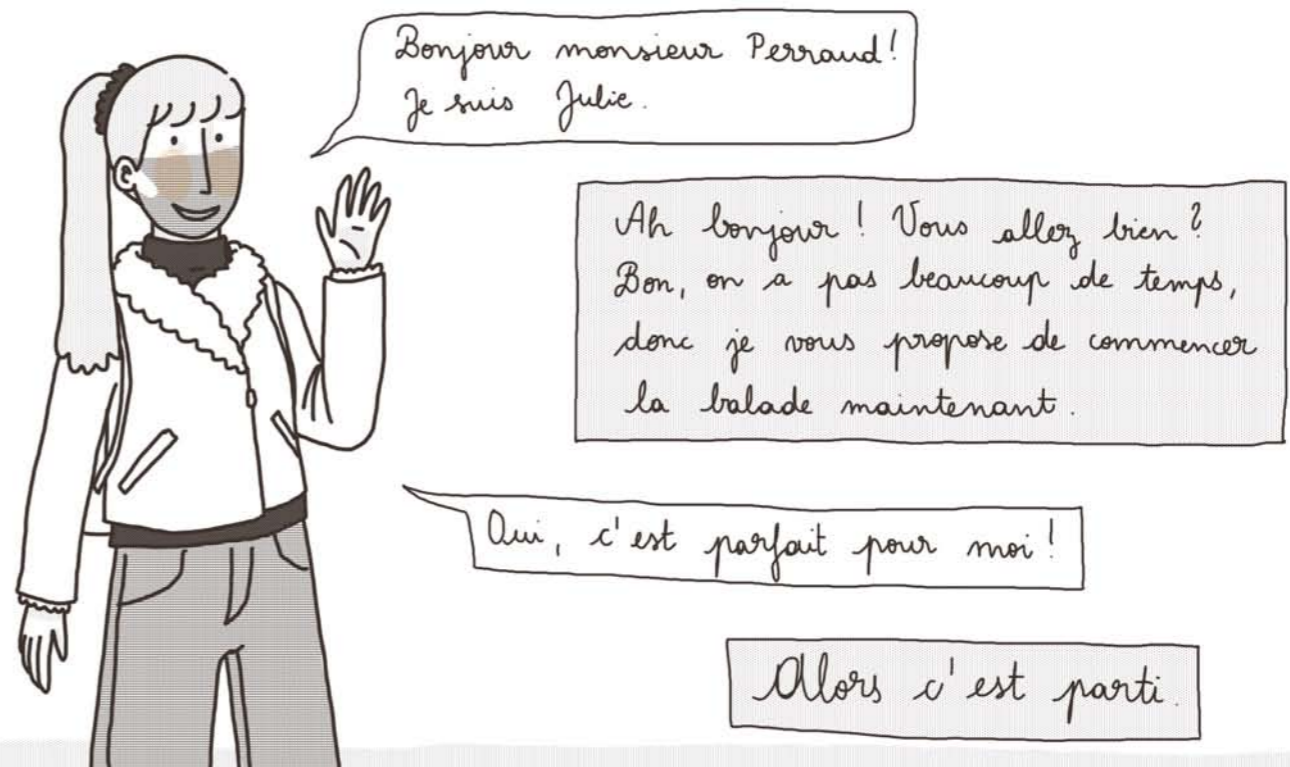 Bonjour monsieur Perraud!
Je suis Julie.
Ah bonjour! Vous allez bien?
Bon, on a pas beaucoup de temps,
donc je vous propose de commencer
la balade maintenant.
Oui, c'est parfait pour moi!
Alors c'est parti.